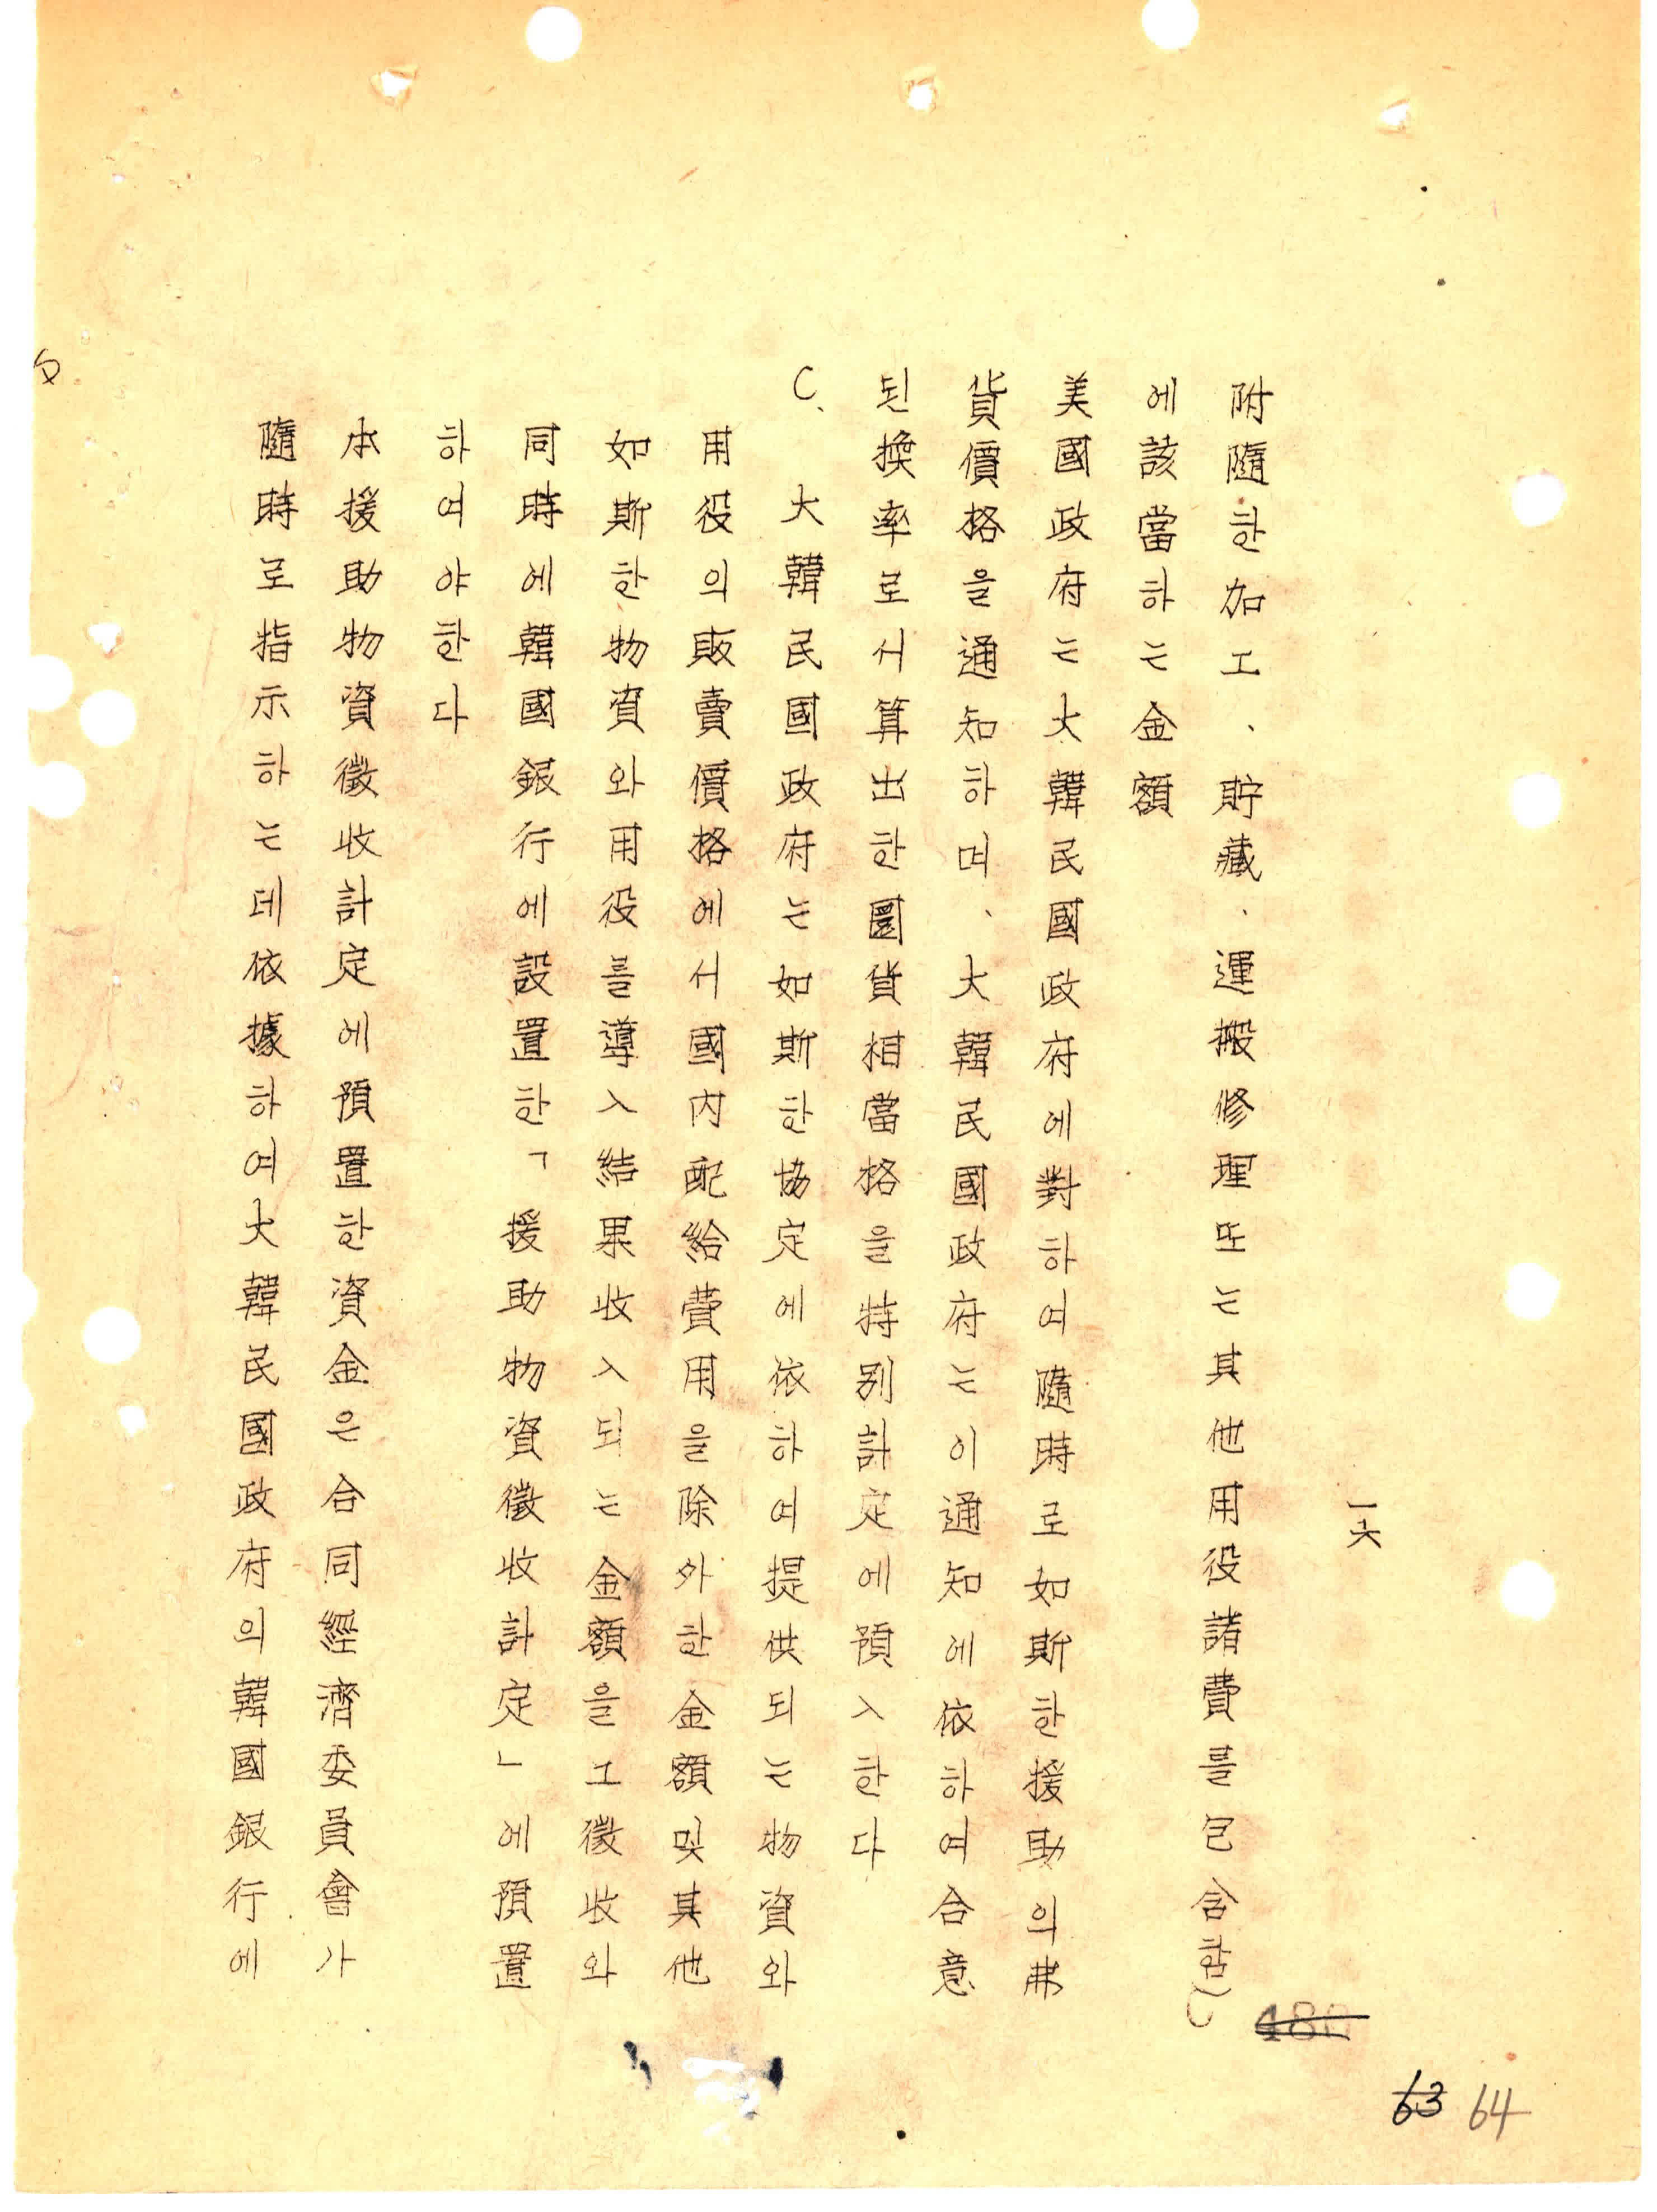 一六
附隨한加工、貯藏、運搬修理또는其他用役諸費를包含함)
에該當하는金額
美國政府는大韓民國政府에對하여隨時로如斯한援助의弗
貨價格을通知하며、大韓民國政府는이通知에依하여合意
된換率로서算出한圜貨相當格을特別計定에預入한다
C、
大韓民國政府는如斯한協定에依하여提供되는物資와
用役의販賣價格에서國內配給費用을除外한金額및其他
如斯한物資와用役를導入結果收入되는金額을그徵收와
同時에韓國銀行에設置한「援助物資徵收計定」에預置
하여야한다
本援助物資徵收計定에預置한資金은合同經濟委員會가
隨時로指示하는데依據하여大韓民國政府의韓國銀行에
63 64